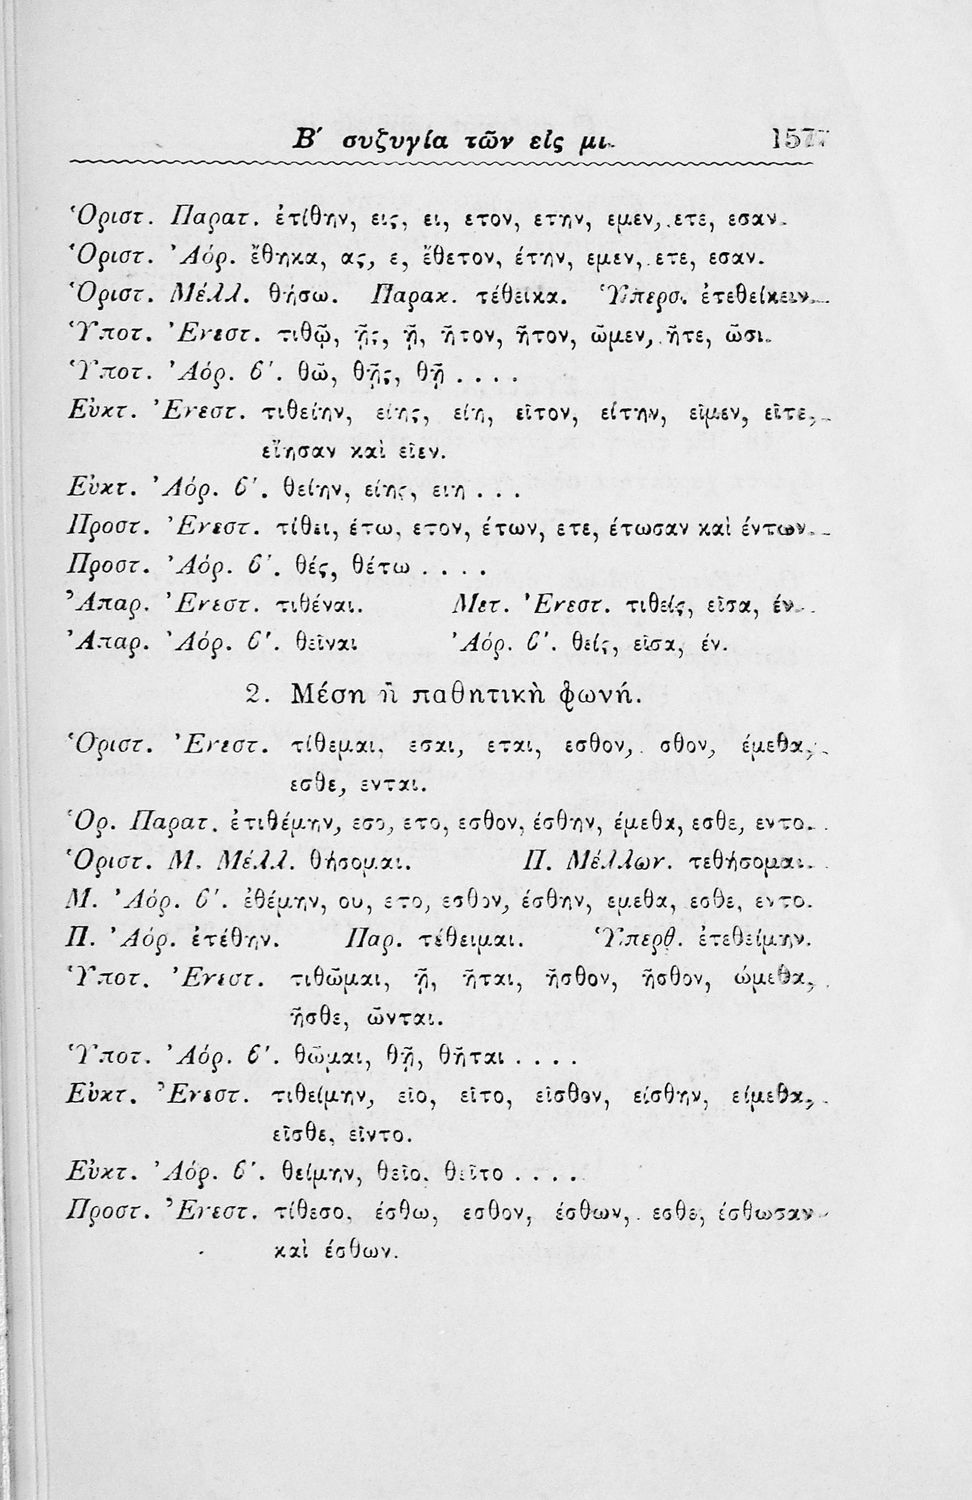 Β΄ συζυγία τῶν εἰς μι. 157
Ὁριστ. Παρατ. ἐτίθην, εις, ει, ετον, ετην, εμεν, ετε, εσαν.
Ὁριστ. Ἀόρ. ἔθηκα, ας, ε, ἔθετον, έτην, εμεν, ετε, εσαν.
Ὁριστ. Μέλλ. θήσω. Παρακ. τέθεικα. Ὑπερσ. ἐτεθείκειν.
Ὑποτ. Ἐνεστ. τιθῶ, ῇς, ῇ, ῆτον, ῆτον, ῶμεν, ῆτε, ῶσι.
Ὑποτ. Ἀόρ. β΄. θῶ, θῇς, θῇ . . . .
Εὐκτ. Ἐνεστ. τιθείην, είης, είη, εῖτον, είτην, εῖμεν, εῖτε,
είησαν καὶ εῖεν.
Εὐκτ. Ἀόρ. β΄. θείην, είης, ειη . . .
Προστ. Ἐνεστ. τίθει, έτω, ετον, έτων, ετε, έτωσαν καὶ έντων.
Προστ. Ἀόρ. β΄. θές, θέτω . . . .
Ἀπαρ. Ἐνεστ. τιθέναι. Μετ. Ἐνεστ. τιθείς, εῖσα, έν.
Ἀπαρ. Ἀόρ. β΄. θεῖναι Ἀόρ. β΄. θείς, εῖσα, έν.
2. Μέση ἢ παθητικὴ φωνή.
Ὁριστ. Ἐνεστ. τίθεμαι, εσαι, εται, εσθον, σθον, έμεθα,
εσθε, ενται.
Ὁρ. Παρατ. ἐτιθέμην, εσο, ετο, εσθον, έσθην, έμεθα, εσθε, εντο.
Ὁριστ. Μ. Μέλλ. θήσομαι. Π. Μέλλων. τεθήσομαι.
Μ. Ἀόρ. β΄. ἐθέμην, ου, ετο, εσθον, έσθην, εμεθα, εσθε, εντο.
Π. Ἀόρ. ἐτέθην. Παρ. τέθειμαι. Ὑπερθ. ἐτεθείμην.
Ὑποτ. Ἐνεστ. τιθῶμαι, ῇ, ῆται, ῆσθον, ῆσθον, ώμεθα,
ῆσθε, ῶνται.
Ὑποτ. Ἀόρ. β΄. θῶμαι, θῇ, θῆται . . . .
Εὐκτ. Ἐνεστ. τιθείμην, εῖο, εῖτο, εῖσθον, είσθην, είμεθα,
εῖσθε, εῖντο.
Εὐκτ. Ἀόρ. β΄. θείμην, θεῖο, θεῖτο . . . .
Προστ. Ἐνεστ. τίθεσο, έσθω, εσθον, έσθων, εσθε, έσθωσαν
καὶ έσθων.